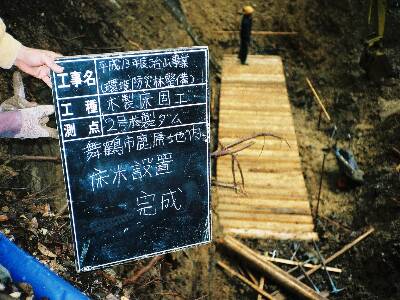 工事名 平成13年度治山事業
(環境防災林整備)
工種 木製床固工
測点 2号木製ダム
舞鶴市鹿原地内
床木設置
完成